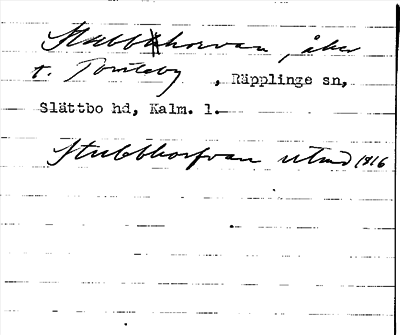 Stubbhorvan, åker
t. Tomteby, Räpplinge sn,
Slättbo hd, Kalm. l.
Stubbhorfvan utmd 1816